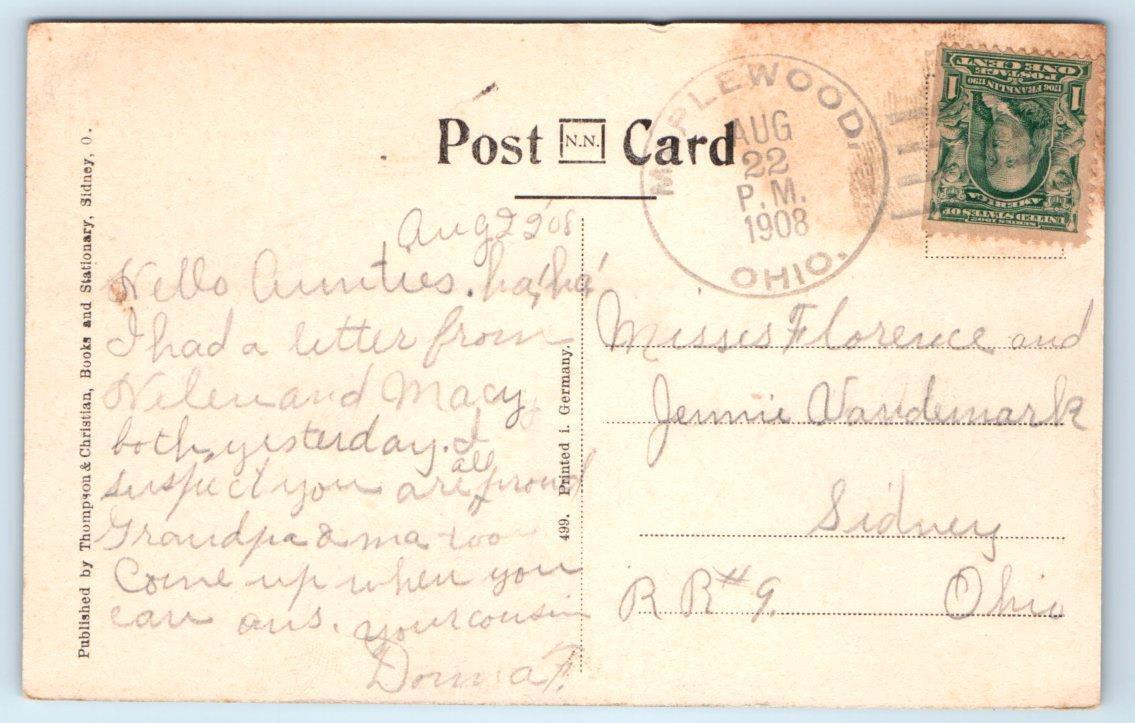 Published by Thompson & Christian, Books and Stationary, Sidney, O.
Post N.N. Card
MAPLEWOOD,
AUG
22
P.M.
1908
OHIO.
ONE CENT
POSTAGE
1706 FRANKLIN 1790
1 1
AMERICA
UNITED STATES OF
SERIES 1902
Aug 22 '08
Hello Aunties. ha, ha'
I had a letter from
Helen and Macy
both, yesterday. I
suspect you are all proud
Grandpa & ma too
Come up when you
can ans. your cousin
Donna F.
499. Printed i. Germany.
Misses Florence and
Jennie Vandemark
Sidney
R R # 9. Ohio